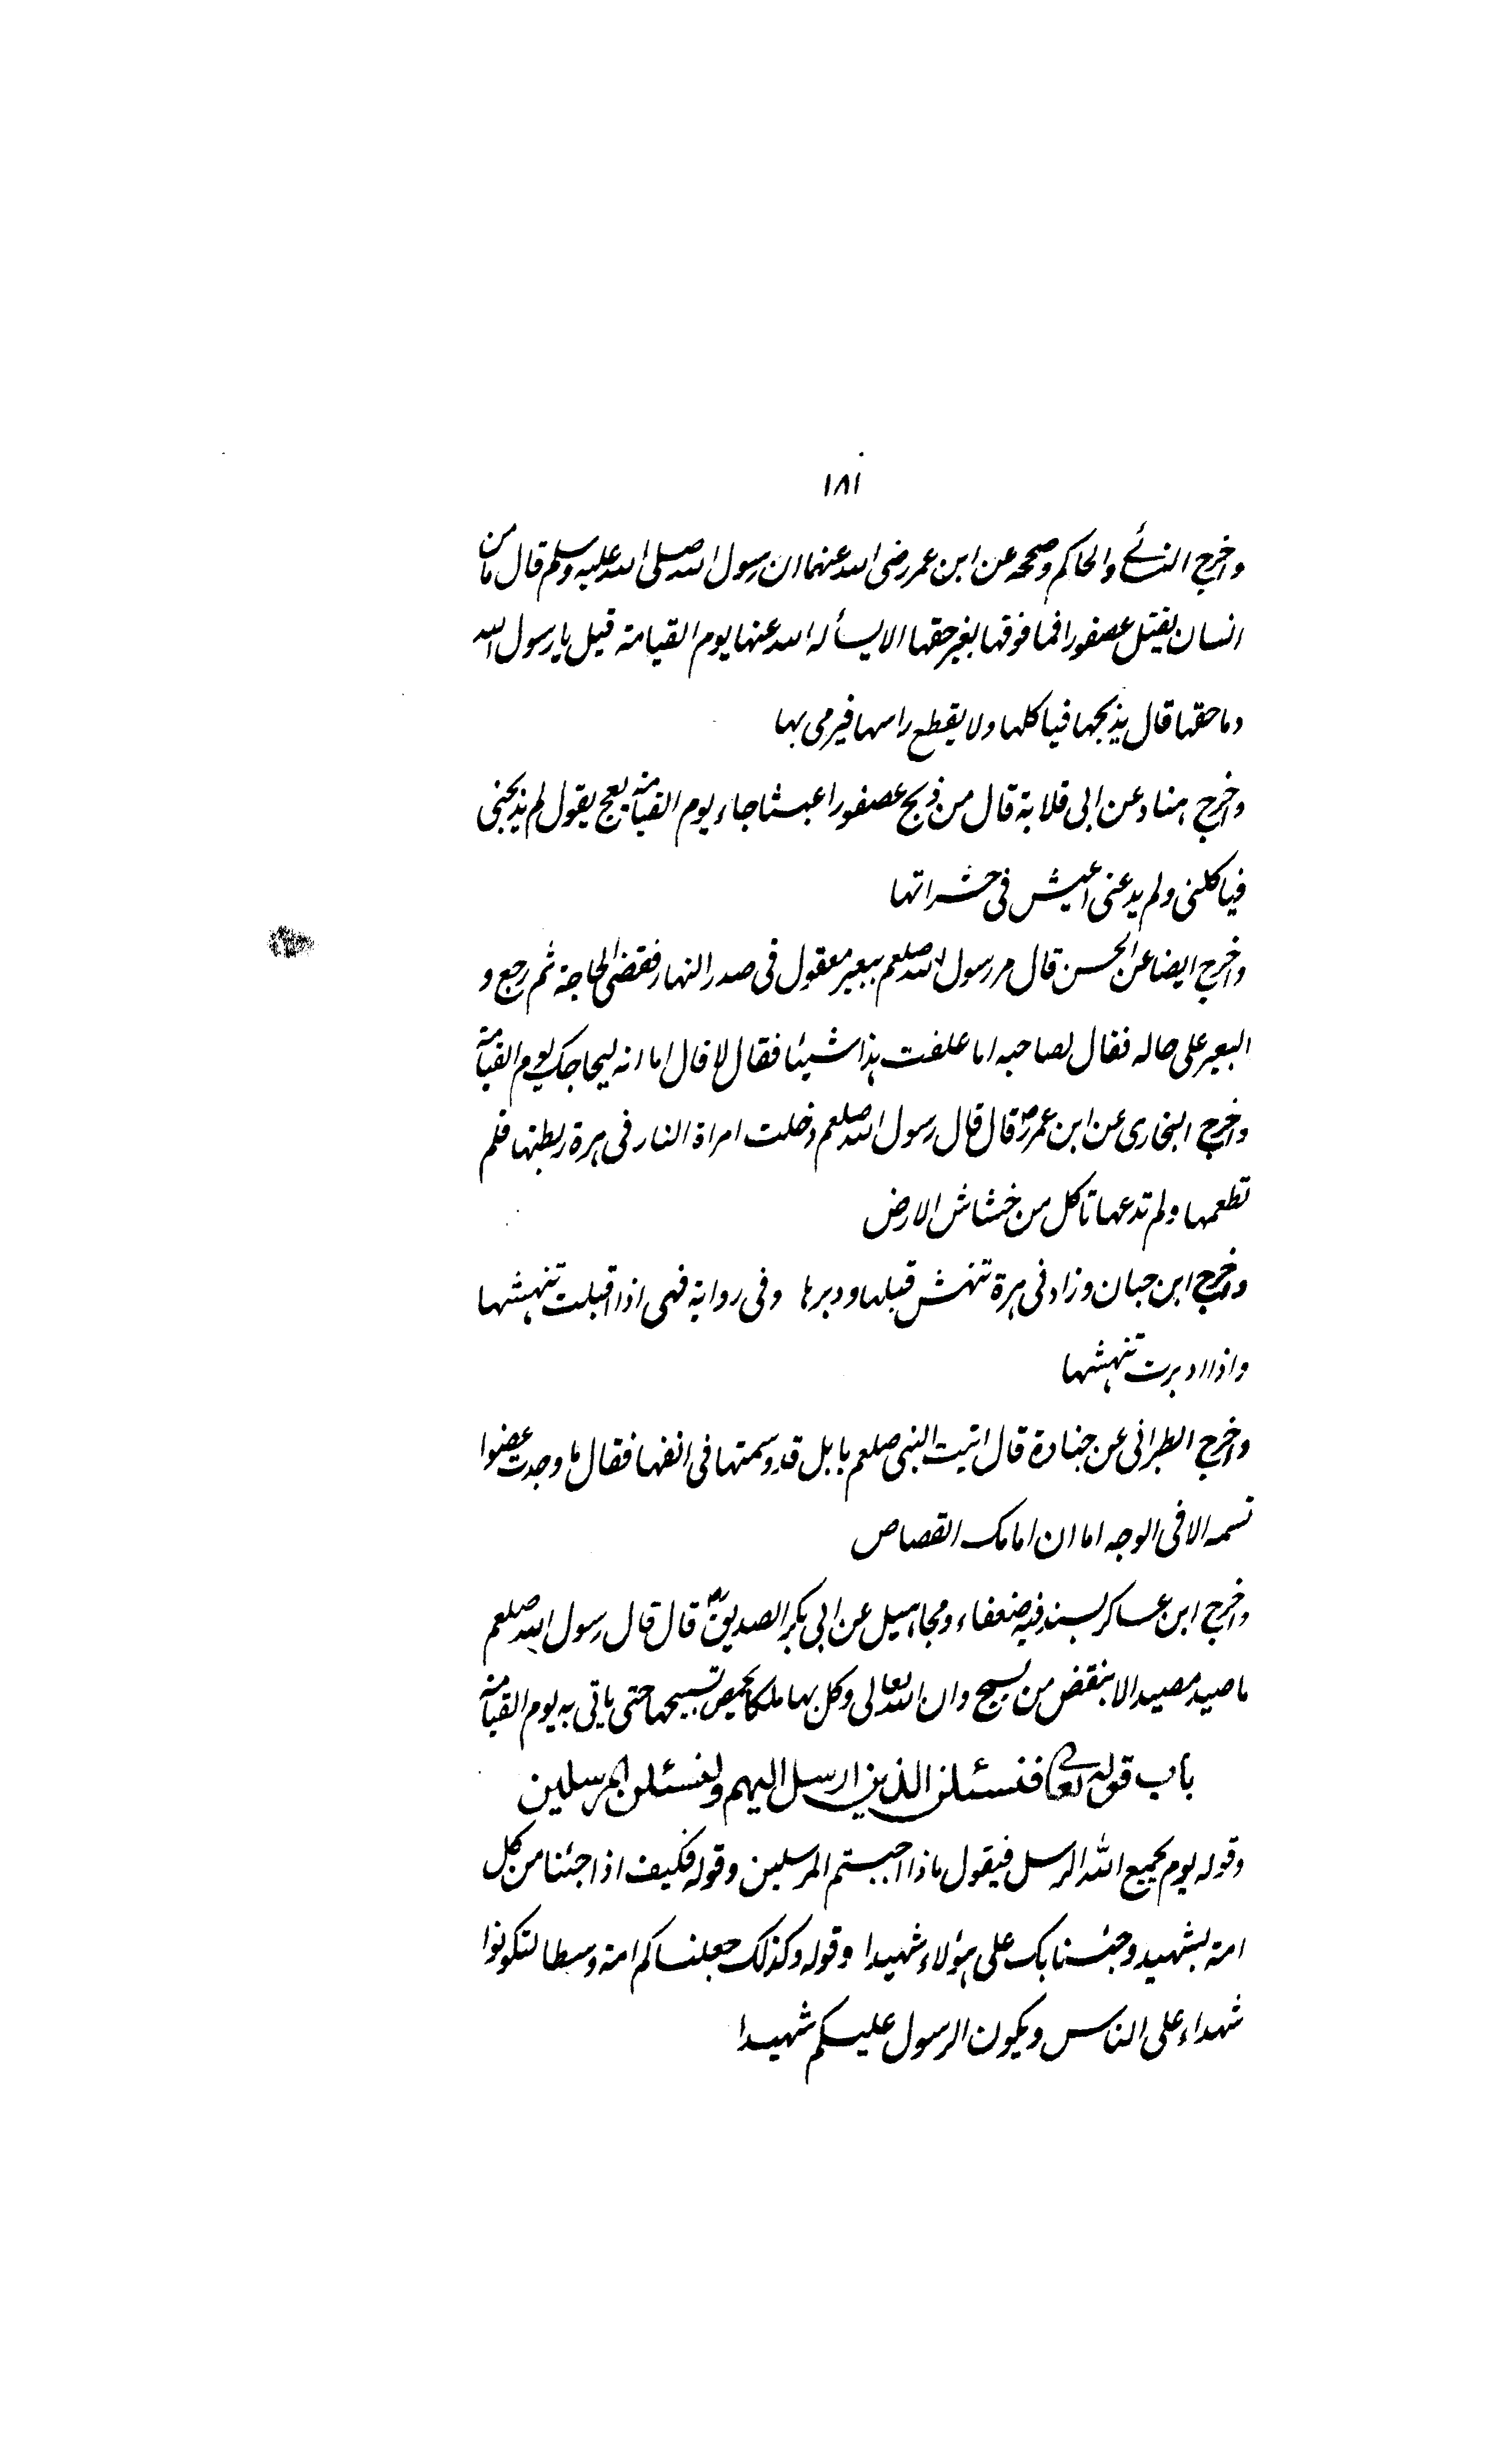 ١٨١
واخرج النسائے والحاكم وصححه عن ابن عمر رضی الله عنهما ان رسول الله صلی الله علیه وسلم قال ما من
انسان يقتل عصفورا فما فوقها بغير حقها الا يسأله الله عنها يوم القيامة قيل يا رسول الله
وما حقها قال يذبحها فياكلها ولا يقطع راسها فيرمی بها
واخرج هناد عن ابی قلابة قال من ذبح عصفورا عبثا جاء يوم القيامة يعج يقول لم يذبحنی
فياكلنی ولم يدعنی اعيش فی حشراتها
واخرج ايضا عن الحسن قال مر رسول الله صلعم ببعير معقول فی صدر النهار فقضی الحاجة ثم رجع و
البعير علی حاله فقال لصاحبه اما علفت هذا شيئا فقال لا قال اما انه ليحاجك يوم القيامة
واخرج البخاری عن ابن عمر رض قال قال رسول الله صلعم دخلت امراة النار فی هرة ربطتها فلم
تطعمها ولم تدعها تاكل من خشاش الارض
واخرج ابن حبان وزاد فی هرة تنهش قبلها ودبرها وفی رواية فهی اذا اقبلت تنهشها
واذا ادبرت تنهشها
واخرج الطبرانی عن جنادة قال اتيت النبی صلعم بابل قد وسمتها فی انفها فقال ما وجدت عضوا
تسمه الا فی الوجه اما ان امامك القصاص
واخرج ابن عساكر بسند فيه ضعفاء ومجاهيل عن ابی بكر الصديق رض قال قال رسول الله صلعم
ما صيد مصيد الا بنقص من تسبيح وان الله تعالی وكل بها ملكا يحصی تسبيحها حتی ياتی به يوم القيامة
باب قوله تعالی فلنسئلن الذين ارسل اليهم ولنسئلن المرسلين
وقوله يوم يجمع الله الرسل فيقول ماذا اجبتم المرسلين وقوله فكيف اذا جئنا من كل
امة بشهيد وجئنا بك علی هؤلاء شهيدا وقوله وكذلك جعلناكم امة وسطا لتكونوا
شهداء علی الناس ويكون الرسول عليكم شهيدا